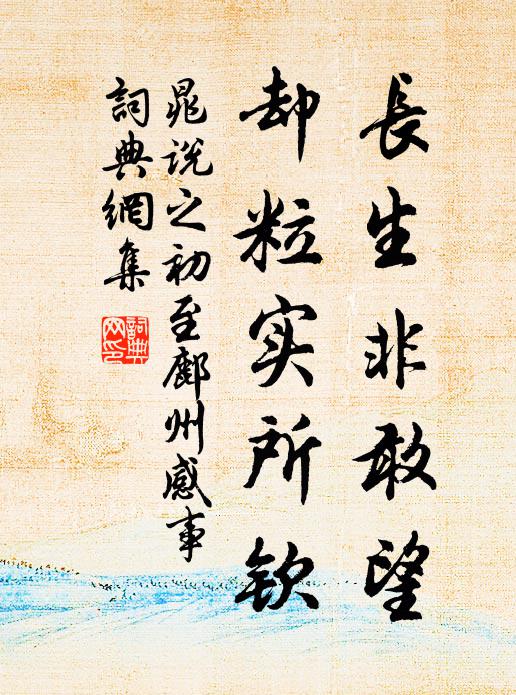 長生非敢望
却粒实所欽
晁説之初至鄜州感事
詞典網集
詞典网印